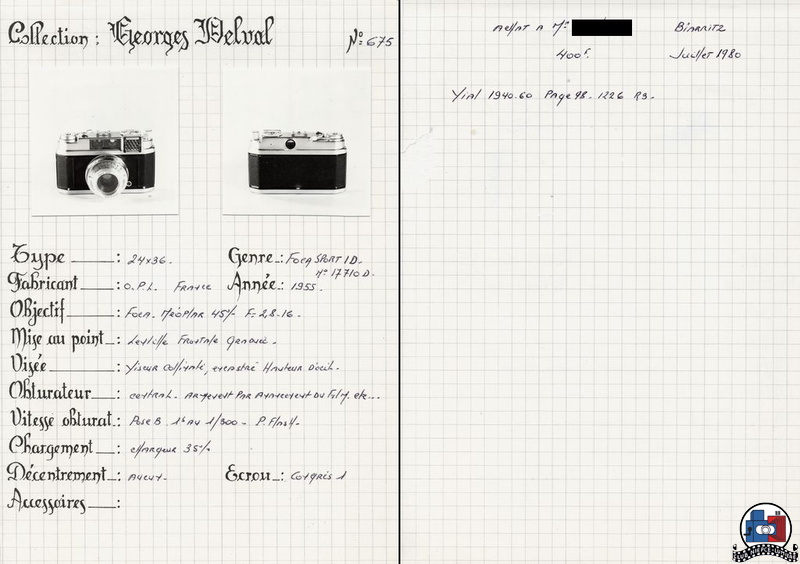 Collection : Georges Delval N° 675
Type : 24x36.
Genre : Foca SPORT I D.
N° 17710 D.
Fabricant : O.P.L. France
Année : 1955.
Objectif : Foca. Néoplar 45% F= 2,8-16.
Mise au point : Lentille Frontale
Visée : Viseur Collimaté, Hauteur D'oeil.
Obturateur : central. Armement Par Avancement Du Film. etc...
Vitesse obturat. : Pose B. 1s Au 1/300 - P. Flash.
Chargement : chargeur 35%
Décentrement : Aucun.
Ecrou : Congrès 1
Accessoires :
Achat A Mr Biarritz
400f. Juillet 1980
Vial 1940.60 Page 98. 1226 R3.